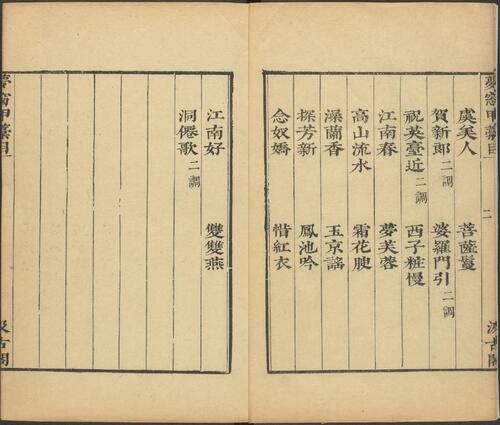 虞美人　菩薩鬘
賀新郎二調　婆羅門引二調
祝英臺近二調　西子粧慢
江南春　夢芙蓉
高山流水　霜花腴
澡蘭香　玉京謠
探芳新　鳳池吟
念奴嬌　惜紅衣
江南好　雙雙燕
洞僊歌二調
夢窗甲藁目　二　汲古閣
夢窗甲藁目　汲古閣